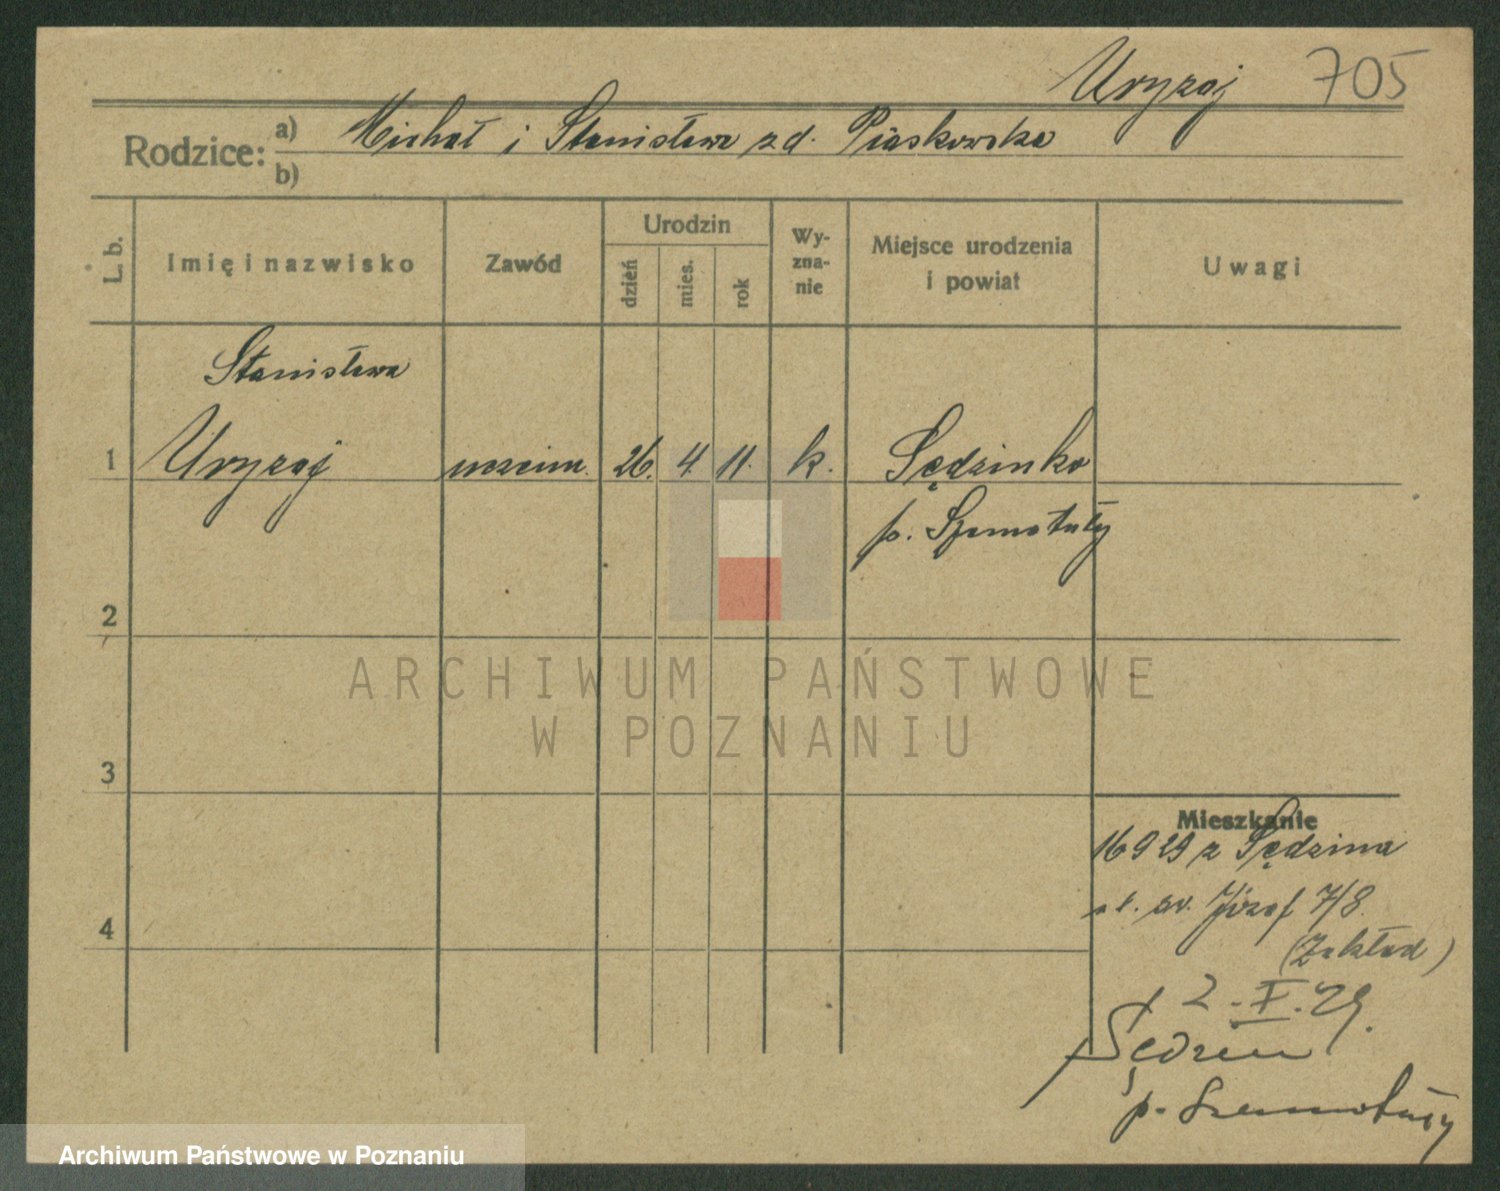 Uryzaj 705
Rodzice: a) Michał i Stanisława z d. Piaskowska
b)
L. b. Imię i nazwisko Zawód Urodzin dzień mies. rok Wy-zna-nie Miejsce urodzenia i powiat Uwagi
Stanisława
1 Uryzaj uczenn. 26. 4. 11. k. Sędzinko
p. Szamotuły
2
3
4
Mieszkanie
16 9 29 z Sędzina
ul. św. Józef 7/8.
(Zakład)
2. X. 29.
Sędzin
p. Szamotuły
ARCHIWUM PAŃSTWOWE
W POZNANIU
Archiwum Państwowe w Poznaniu